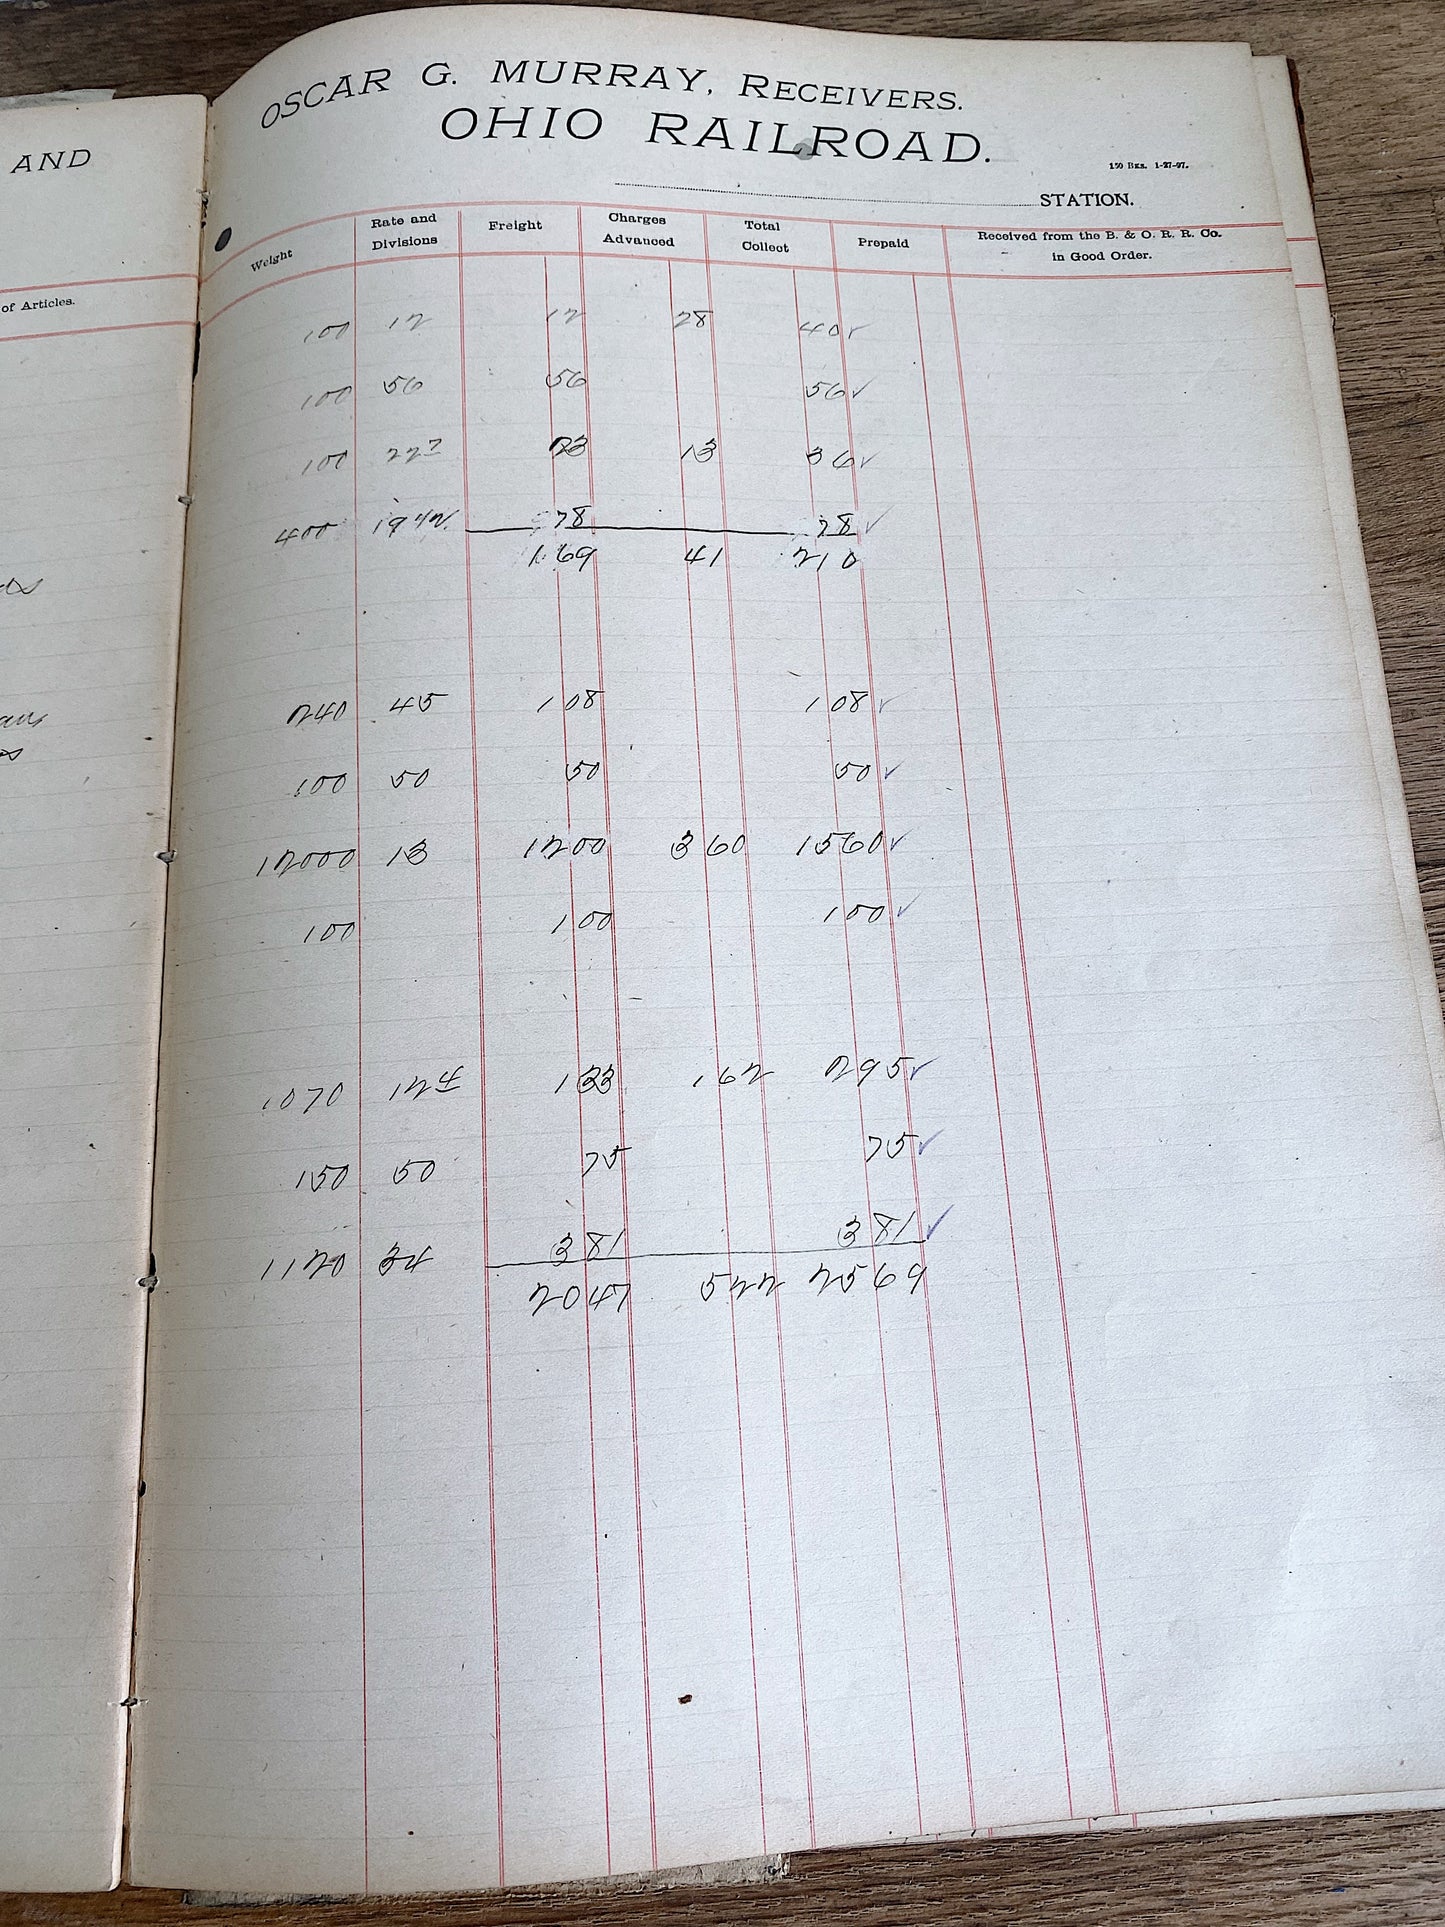 AND
of Articles.
OSCAR G. MURRAY, RECEIVERS.
OHIO RAILROAD.
150 Bks. 1-27-97.
STATION.
Weight Rate and Divisions Freight Charges Advanced Total Collect Prepaid Received from the B. & O. R. R. Co. in Good Order.
100 12 12 28 40 ✓
100 56 56 56 ✓
100 22 7 23 13 36 ✓
400 19 4/2 78 78 ✓
1.69 41 210
240 45 108 108 ✓
100 50 50 50 ✓
12000 13 1200 360 1560 ✓
100 100 100 ✓
1070 12 4 133 162 295 ✓
150 50 75 75 ✓
1120 34 381 381 ✓
2047 522 2569